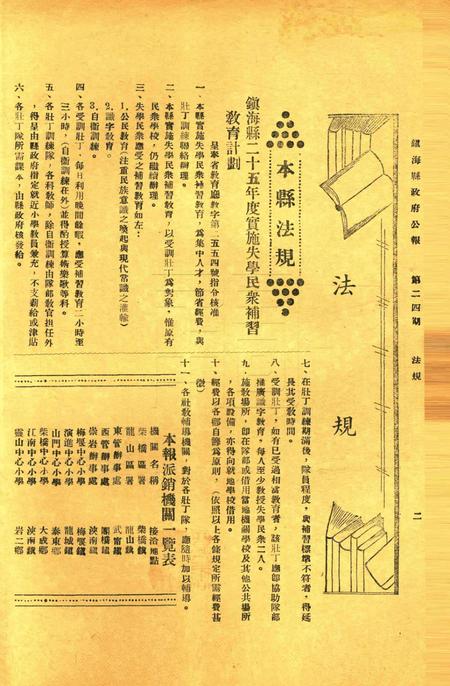 鎮海縣政府公報　第二四期　法規　二
法規
本縣法規
鎮海縣二十五年度實施失學民衆補習
教育計劃
呈奉省教育廳教字第二五五四號指令核准
一、本縣實施失學民衆補習教育，爲集中人才，節省經費，與
壯丁訓練聯絡辦理。
二、本縣實施失學民衆補習教育，以受訓壯丁爲對象，惟原有
民衆學校，仍繼續辦理。
三、失學民衆應受之補習教育如左：
1.公民教育（注重民族意識之喚起與現代常識之灌輸）
2.識字教育。
3.自衛訓練。
四、各受訓壯丁，每日利用晚間餘暇，應受補習教育二小時至
三小時，（自衛訓練在外）並得酌授算術樂歌等科。
五、各壯丁訓練隊，各科教師，除自衛訓練由隊部教官担任外
，得呈由縣政府指定就近小學教員兼充，不支薪給或津貼
六、各壯丁隊所需課本，由縣政府核發給。
七、在壯丁訓練期滿後，隊員程度，與補習標準不符者，得延
長其受教時間。
八、受訓壯丁，如有已受過相當教育者，該壯丁應卽協助隊部
推廣識字教育，每人至少教授失學民衆二人。
九、施教場所，卽在隊部或借用當地機關學校及其他公共場所
，各項設備，亦得向就地學校借用。
十、經費以各鄉自籌爲原則，（依照以上各條規定所需經費甚
微）
十一、各社教輔導機關，對於各壯丁隊，應隨時加以輔導。
本報派銷機關一覽表
機關名稱　接洽地點
柴橋區署　柴橋鎮
龍山區署　龍山鎮
東管辦事處　武甯鎮
西管辦事處　團橋鎮
崇岩辦事處　泱南鎮
梅堰中心小學　梅堰鎮
演進中心小學　龍城鎮
山門中心小學　泰東鄉
柴橋中心小學　大衆鄉
江南中心小學　泱南鎮
靈山中心小學　岩二鄉